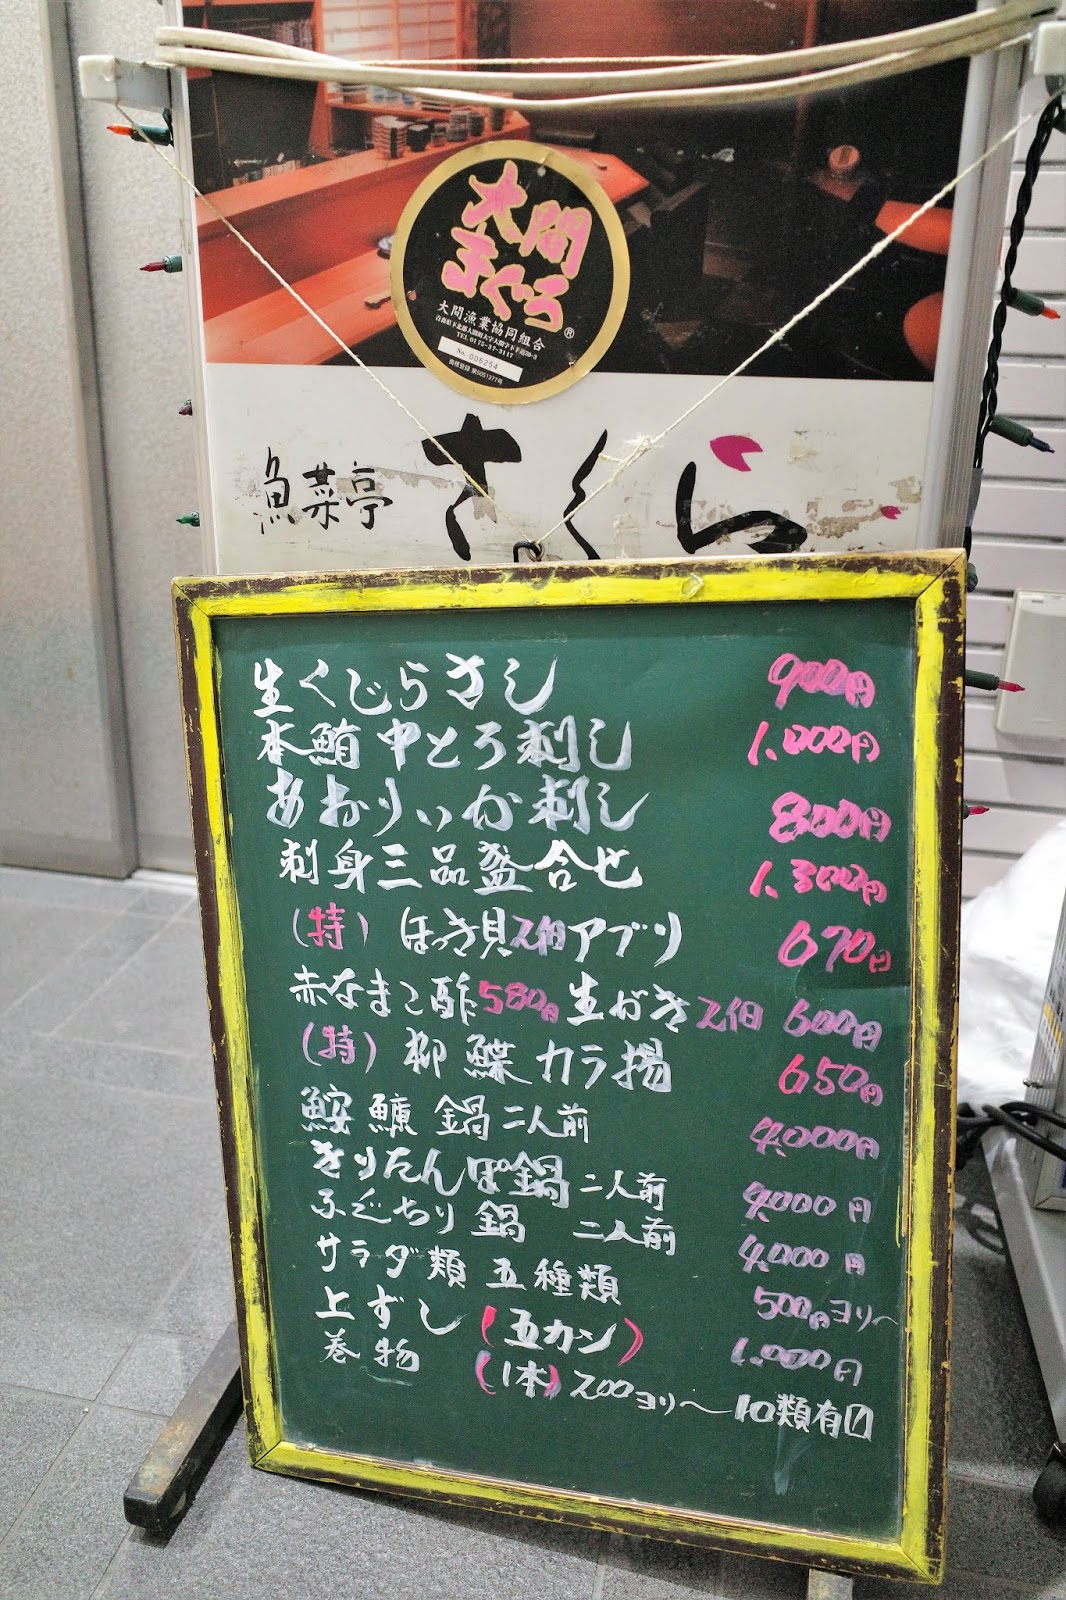 大間
まぐろ®
大間漁業協同組合
青森県下北郡大間町大字大間字下手道30-3
TEL 0175-37-3117
No. 006254
商標登録 第5051377号
魚菜亭 さくら
生くじらさし 900円
本鮪中とろ刺し 1,000円
あおりいか刺し 800円
刺身三品盛合せ 1,300円
(特) ほっき貝2個アブリ 670円
赤なまこ酢580円 生がき2個 600円
(特) 柳鰈カラ揚 650円
鮟鱇鍋二人前 4,000円
きりたんぽ鍋 二人前 4,000円
ふぐちり鍋 二人前 4,000円
サラダ類 五種類 500円ヨリ〜
上ずし (五カン) 1,000円
巻物 (1本) 200ヨリ〜10類有〼